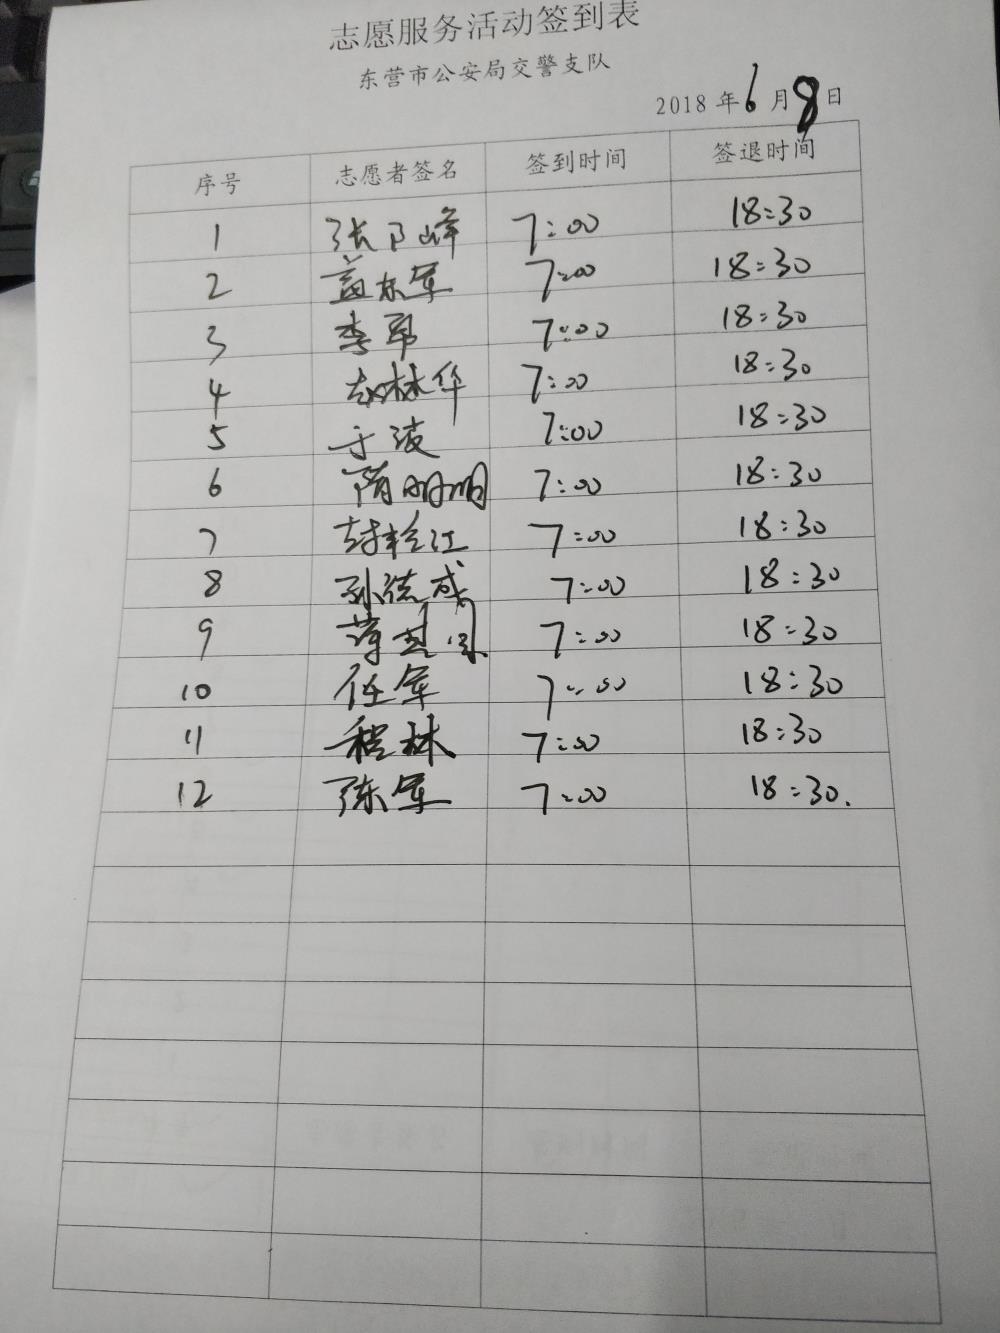 志愿服务活动签到表
东营市公安局交警支队
2018 年 6 月 8 日
序号 志愿者签名 签到时间 签退时间
1 张卫峰 7:00 18:30
2 盖东军 7:00 18:30
3 李军 7:00 18:30
4 赵林华 7:00 18:30
5 于波 7:00 18:30
6 隋明明 7:00 18:30
7 7:00 18:30
8 孙德成 7:00 18:30
9 7:00 18:30
10 任军 7:00 18:30
11 程林 7:00 18:30
12 陈军 7:00 18:30.